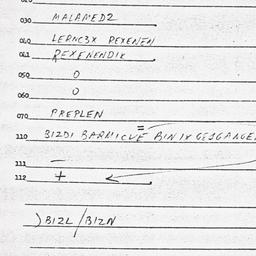 030 MALAMED2
040 LERNC3X REXENEN
041 REXENENDIK
050 0
060 0
070 PREPLEN
110 BIZDI BARMICVE BIN IX GEJGANGE
111 —
112 +
) BIZL/BIZN